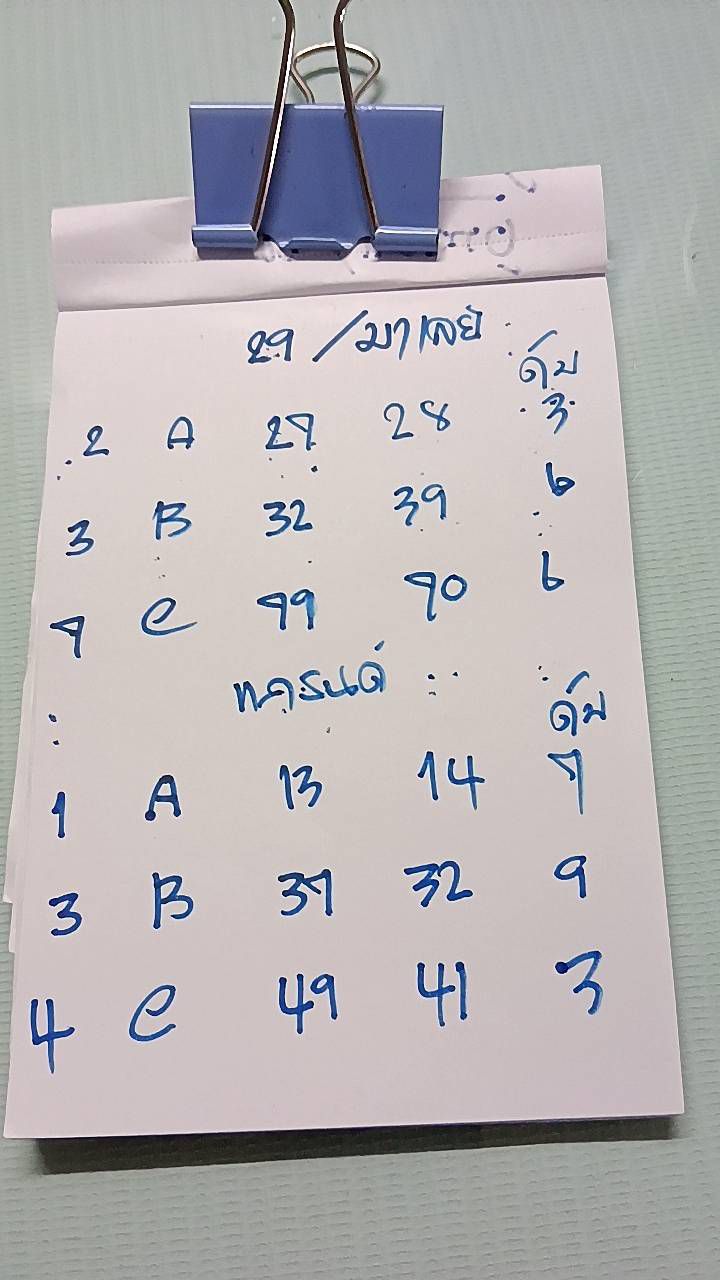 29 /มาเลย์
ดับ
2 A 27 28 3
3 B 32 39 6
7 C 79 70 6
ดับ
1 A 13 14 7
3 B 37 32 9
4 C 49 41 3